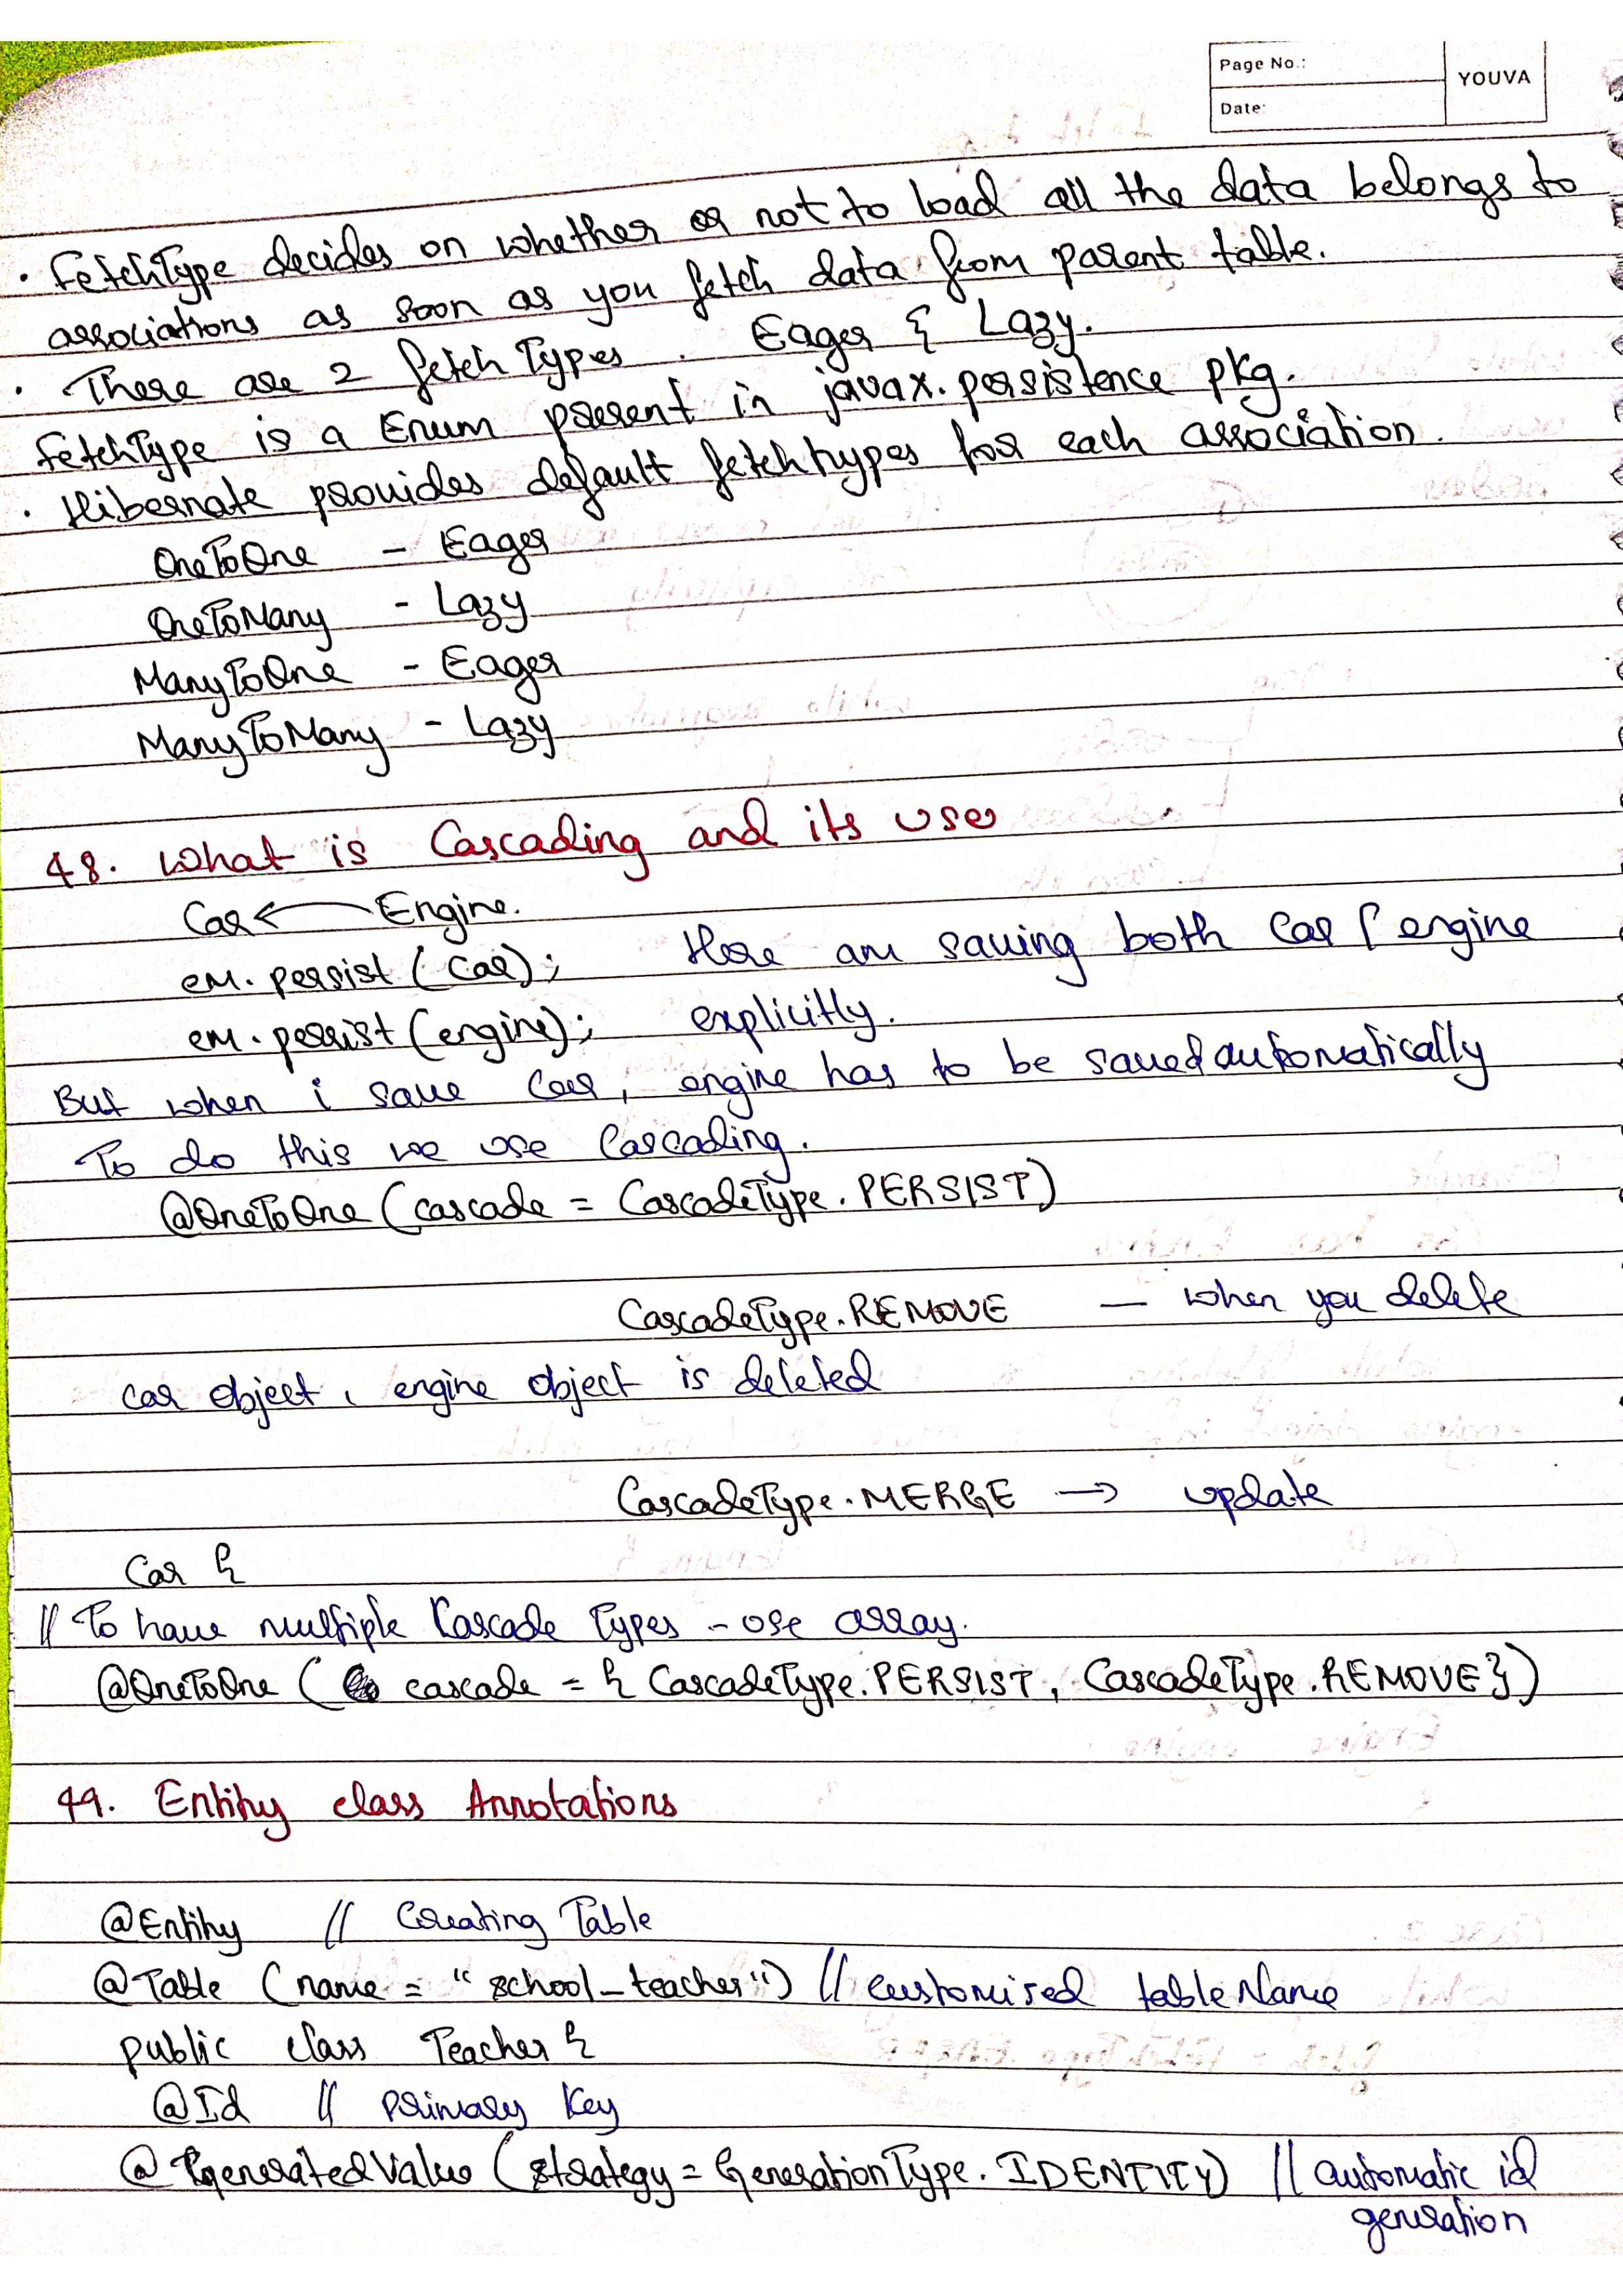 Page No.:
YOUVA
Date:
• FetchType decides on whether or not to load all the data belongs to
associations as soon as you fetch data from parent table.
• There are 2 fetch Types. Eager & Lazy.
FetchType is a Enum present in javax.persistence pkg.
• Hibernate provides default fetchtypes for each association.
OneToOne - Eager
OneToMany - Lazy
ManyToOne - Eager
ManyToMany - Lazy
48. What is Cascading and its uses
Car ← Engine.
em.persist(car); Here am saving both Car & engine
em.persist(engine); explicitly.
But when i save Car, engine has to be saved automatically
To do this we use Cascading.
@OneToOne (cascade = CascadeType.PERSIST)
CascadeType.REMOVE — when you delete
car object, engine object is deleted
CascadeType.MERGE → update
Car {
// To have multiple Cascade Types - use array.
@OneToOne ( cascade = { CascadeType.PERSIST, CascadeType.REMOVE})
49. Entity class Annotations
@Entity // Creating Table
@Table (name = "school_teacher") // customised tableName
public class Teacher {
@Id // Primary Key
@GeneratedValue (strategy = GenerationType.IDENTITY) // automatic id
generation